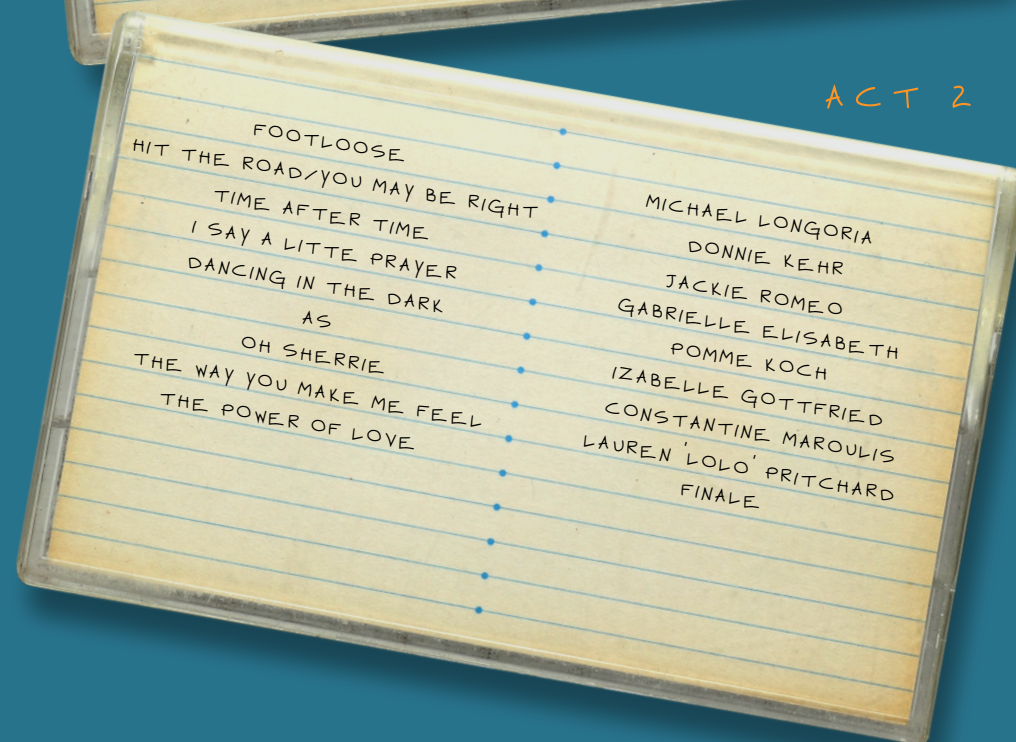 ACT 2
FOOTLOOSE
HIT THE ROAD/YOU MAY BE RIGHT
TIME AFTER TIME
I SAY A LITTE PRAYER
DANCING IN THE DARK
AS
OH SHERRIE
THE WAY YOU MAKE ME FEEL
THE POWER OF LOVE
MICHAEL LONGORIA
DONNIE KEHR
JACKIE ROMEO
GABRIELLE ELISABETH
POMME KOCH
IZABELLE GOTTFRIED
CONSTANTINE MAROULIS
LAUREN 'LOLO' PRITCHARD
FINALE